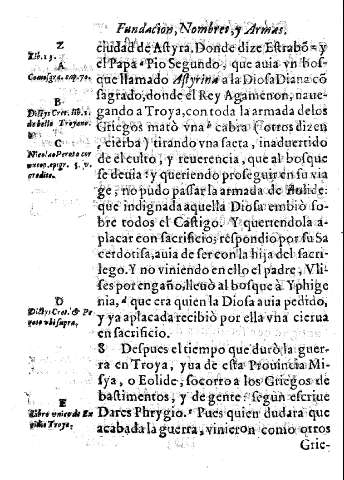 Fundacion, Nombres, y Armas,
Z
Lib. 13.
A
Comosgra. cap. 70.
B
Dictys Cret. lib. 1.
de bello Troyano.
C
Nicolao Peroto cor
nucop. epigr. 5. v.
D
Dictys Cret. & Pe
roto vbi supra.
E
Libro vnico de Ex
cidio Troyæ.
ciudad de Astyra, Donde dize Estrabõ z y
el Papa a Pio Segundo, que auia vn bos-
que llamado Astyrina a la Diosa Diana cõ
sagrado, donde el Rey Agamenon, naue-
gando a Troya, con toda la armada de los
Griegos matò vna b cabra (otros dizen
c cierba) tirando vna saeta, inaduertido
de el culto, y reuerencia, que al bosque
se deuia: y queriendo proseguir en su via
ge, no pudo passar la armada de Aulide:
que indignada aquella Diosa embiò so-
bre todos el Castigo. Y queriendola a-
placar con sacrificio; respondio por su Sa
cerdotisa, auia de ser con la hija del sacri-
lego. Y no viniendo en ello el padre, Vli-
ses por engaño, lleuò al bosque à Yphige
nia, d que era quien la Diosa auia pedido,
y ya aplacada recibiò por ella vna cierua
en sacrificio.
8 Despues el tiempo que durò la guer-
ra en Troya, y ua de esta Prouincia Mi-
sya, o Eolide, socorro a los Griegos de
bastimentos, y de gente: segun escriue
Dares Phrygio. e Pues quien dudara que
acabada la guerra, vinieron como otros
Grie-